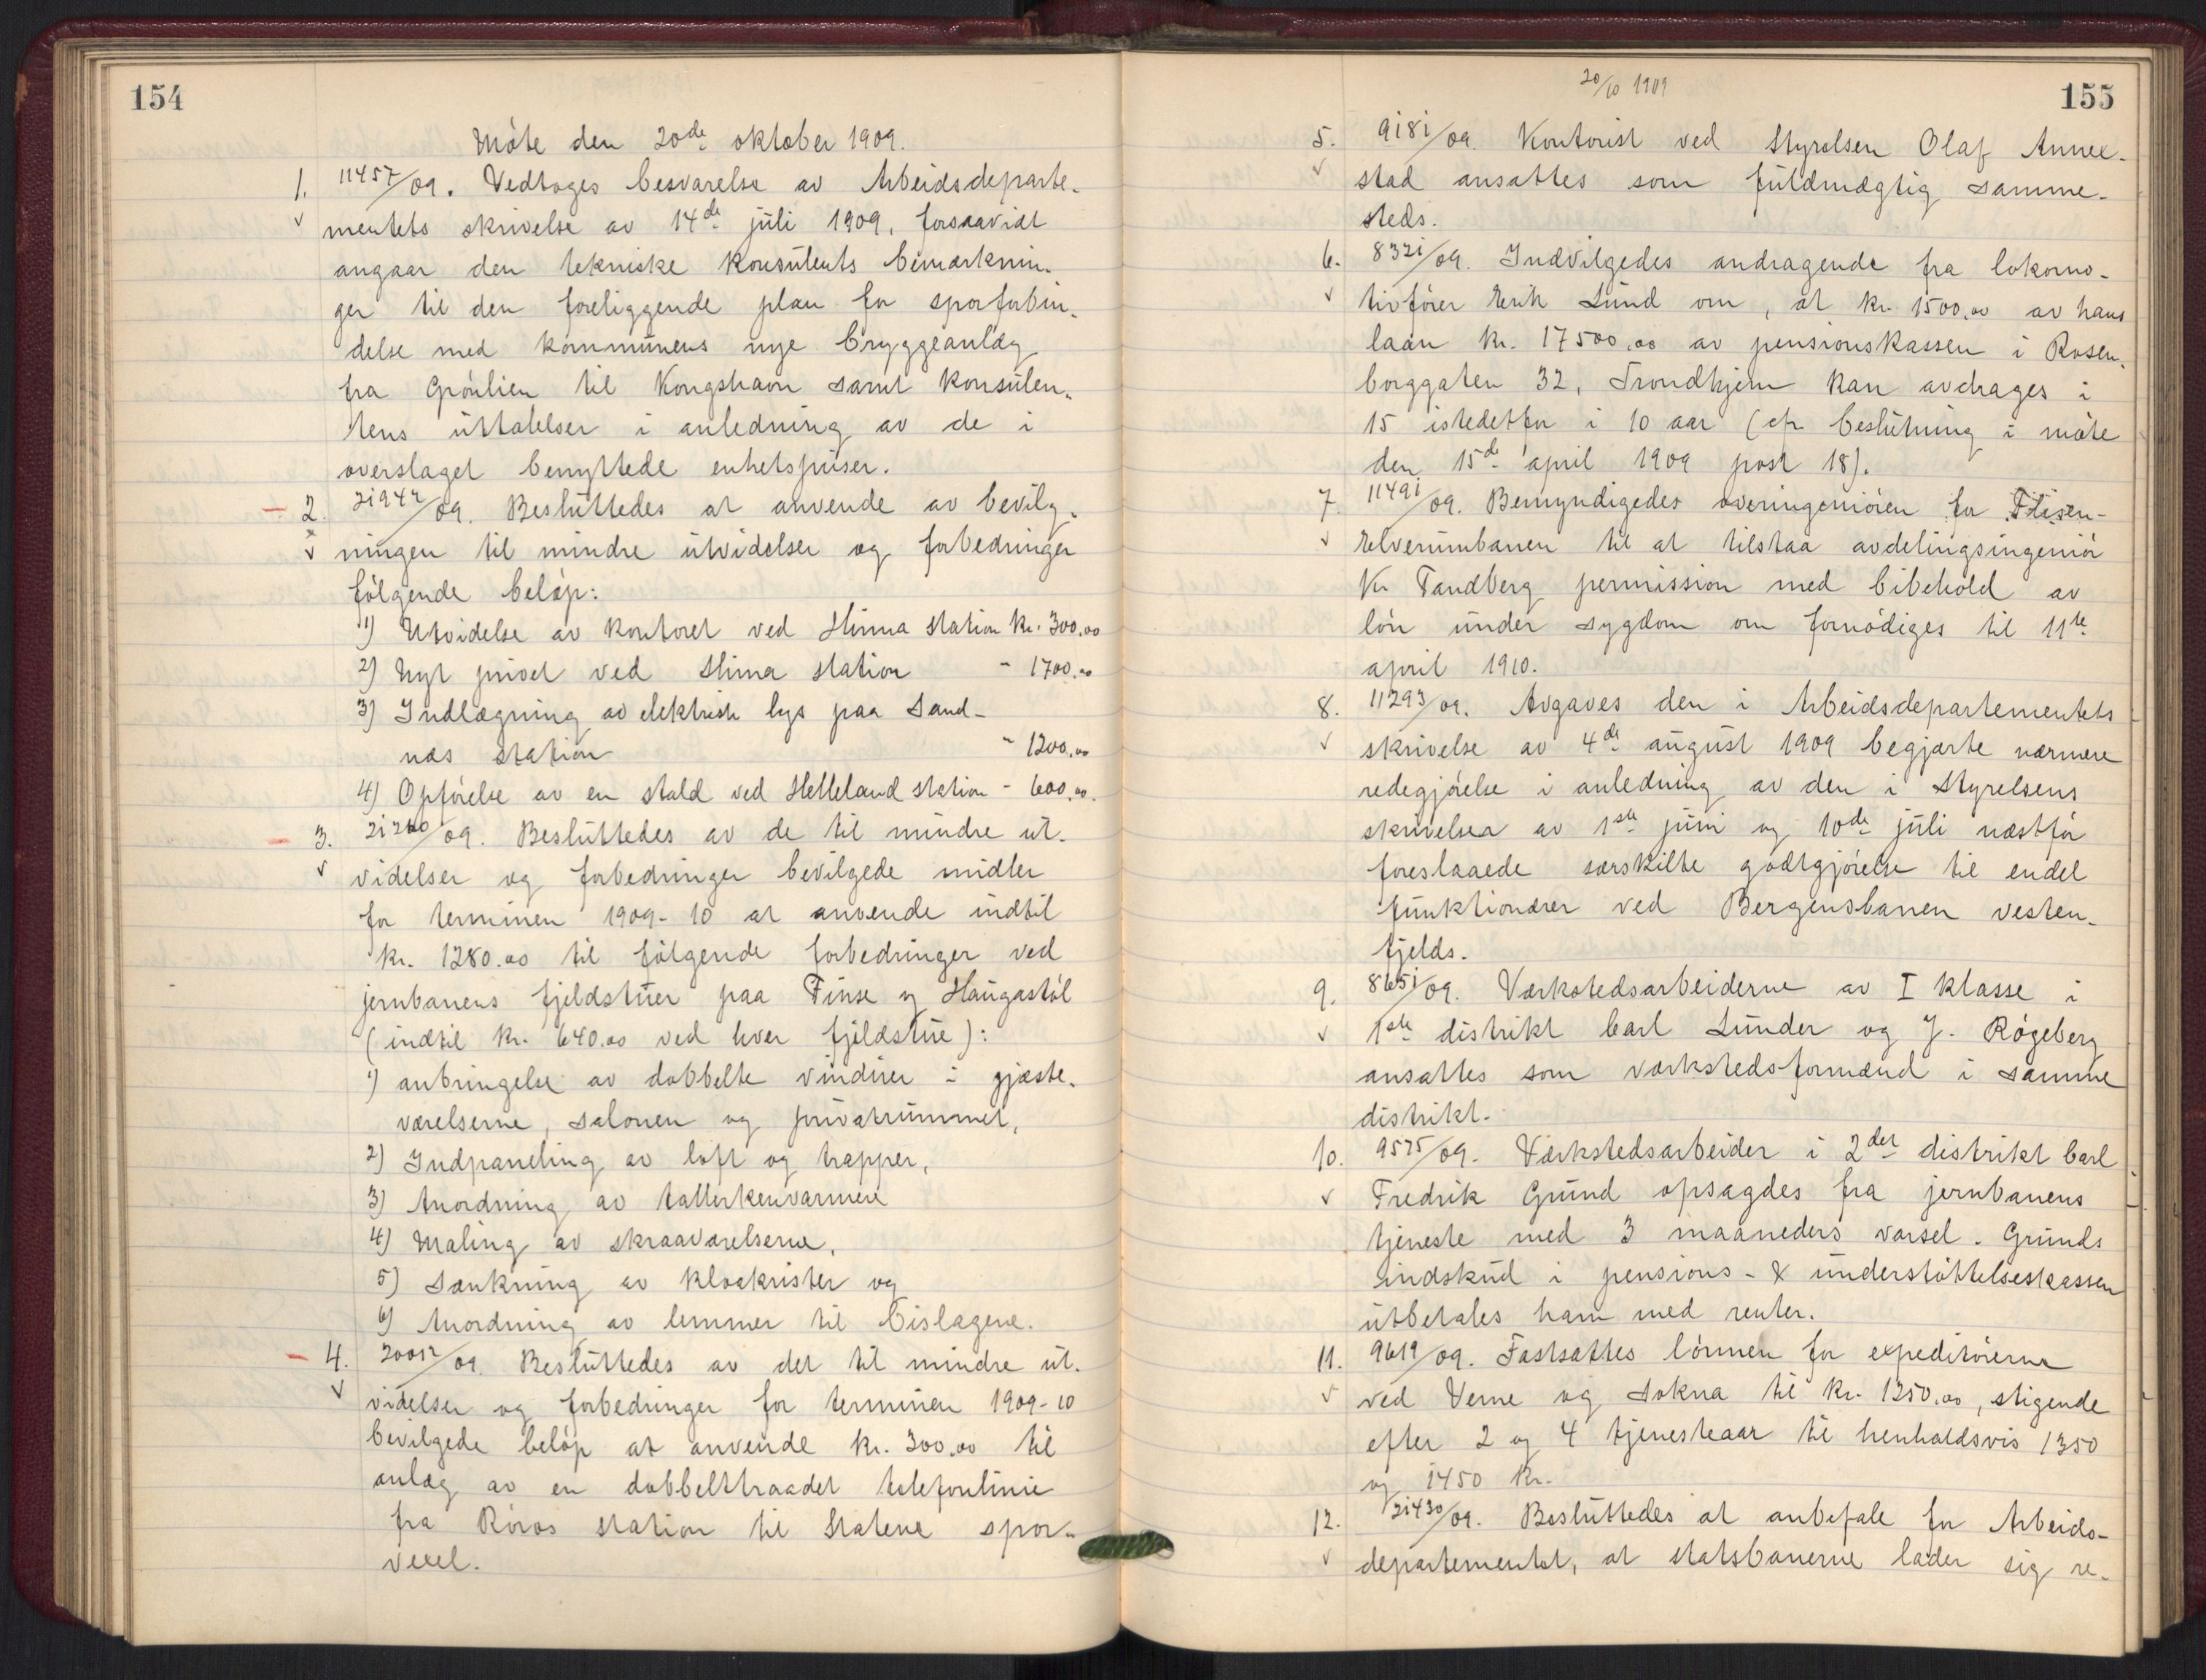 154
Møte den 20de oktober 1909.
1. 11457/09. Vedtoges besvarelse av Arbeidsdeparte-
mentets skrivelse av 14de juli 1909, forsaavidt
angaar den tekniske konsulents bemærknin-
ger til den foreliggende plan for sporforbin-
delse med kommunens nye bryggeanlæg
fra Grønlien til Kongshavn samt konsulen-
tens uttalelser i anledning av de i
overslaget benyttede enhetspriser.
2. 21942/09. Besluttedes at anvende av bevilg-
ningen til mindre utvidelser og forbedringer
følgende beløp:
1) Utvidelse av kontoret ved Hinna station kr. 300.00
2) Nyt privet ved Hinna station - 1700.00
3) Indlægning av elektrisk lys paa Sand-
næs station - 1200.00
4) Opførelse av en stald ved Helleland station - 600.00.
3. 21260/09. Besluttedes av de til mindre ut-
videlser og forbedringer bevilgede midler
for terminen 1909-10 at anvende indtil
kr. 1280.00 til følgende forbedringer ved
jernbanens fjeldstuer paa Finse og Haugastøl
(indtil kr. 640.00 ved hver fjeldstue):
1) anbringelse av dobbelte vinduer i gjæste-
værelserne, salonen og privatrummet,
2) Indpaneling av loft og trapper,
3) Anordning av tallerkenvarmere
4) Maling av skraaværelserne,
5) Sænkning av kloakrister og
6) Anordning av lemmer til bislagene.
4. 20012/09. Besluttedes av det til mindre ut-
videlser og forbedringer for terminen 1909-10
bevilgede beløp at anvende kr. 300.00 til
anlæg av en dobbelttraadet telefonlinie
fra Røros station til Statens spor-
vexel.
20/10 1909
155
5. 9181/09. Kontorist ved Styrelsen Olaf Annex-
stad ansattes som fuldmægtig samme-
steds.
6. 8321/09. Indvilgedes andragende fra lokomo-
tivfører Erik Lund om, at kr. 1500.00 av hans
laan kr. 17500.00 av pensionskassen i Rosen-
borggaten 32, Trondhjem kan avdrages i
15 istedetfor i 10 aar (cfr. beslutning i møte
den 15de april 1909 post 18).
7. 11491/09. Bemyndigedes overingeniøren for Flisen-
Elverumbanen til at tilstaa avdelingsingeniør
Kr. Tandberg permission med bibehold av
løn under sygdom om fornødiges til 11te
april 1910.
8. 11293/09. Avgaves den i Arbeidsdepartementets
skrivelse av 4de august 1909 begjærte nærmere
redegjørelse i anledning av den i Styrelsens
skrivelser av 1ste juni og 10de juli næstfør
foreslaaede særskilte godtgjørelse til endel
funktionærer ved Bergensbanen vesten-
fjelds.
9. 8651/09. Værkstedsarbeiderne av I klasse i
1ste distrikt Carl Lunder og J. Røgeberg
ansattes som værkstedsformænd i samme
distrikt.
10. 9575/09. Værkstedsarbeider i 2det distrikt Carl
Fredrik Grund opsagdes fra jernbanens
tjeneste med 3 maaneders varsel. Grunds
indskud i pensions- & understøttelseskassen
utbetales ham med renter.
11. 9619/09. Fastsattes lønnen for expeditørerne
ved Verne og Sokna til kr. 1250.00, stigende
efter 2 og 4 tjenesteaar til henholdsvis 1350
og 1450 kr.
12. 21430/09. Besluttedes at anbefale for Arbeids-
departementet, at statsbanerne lader sig re-